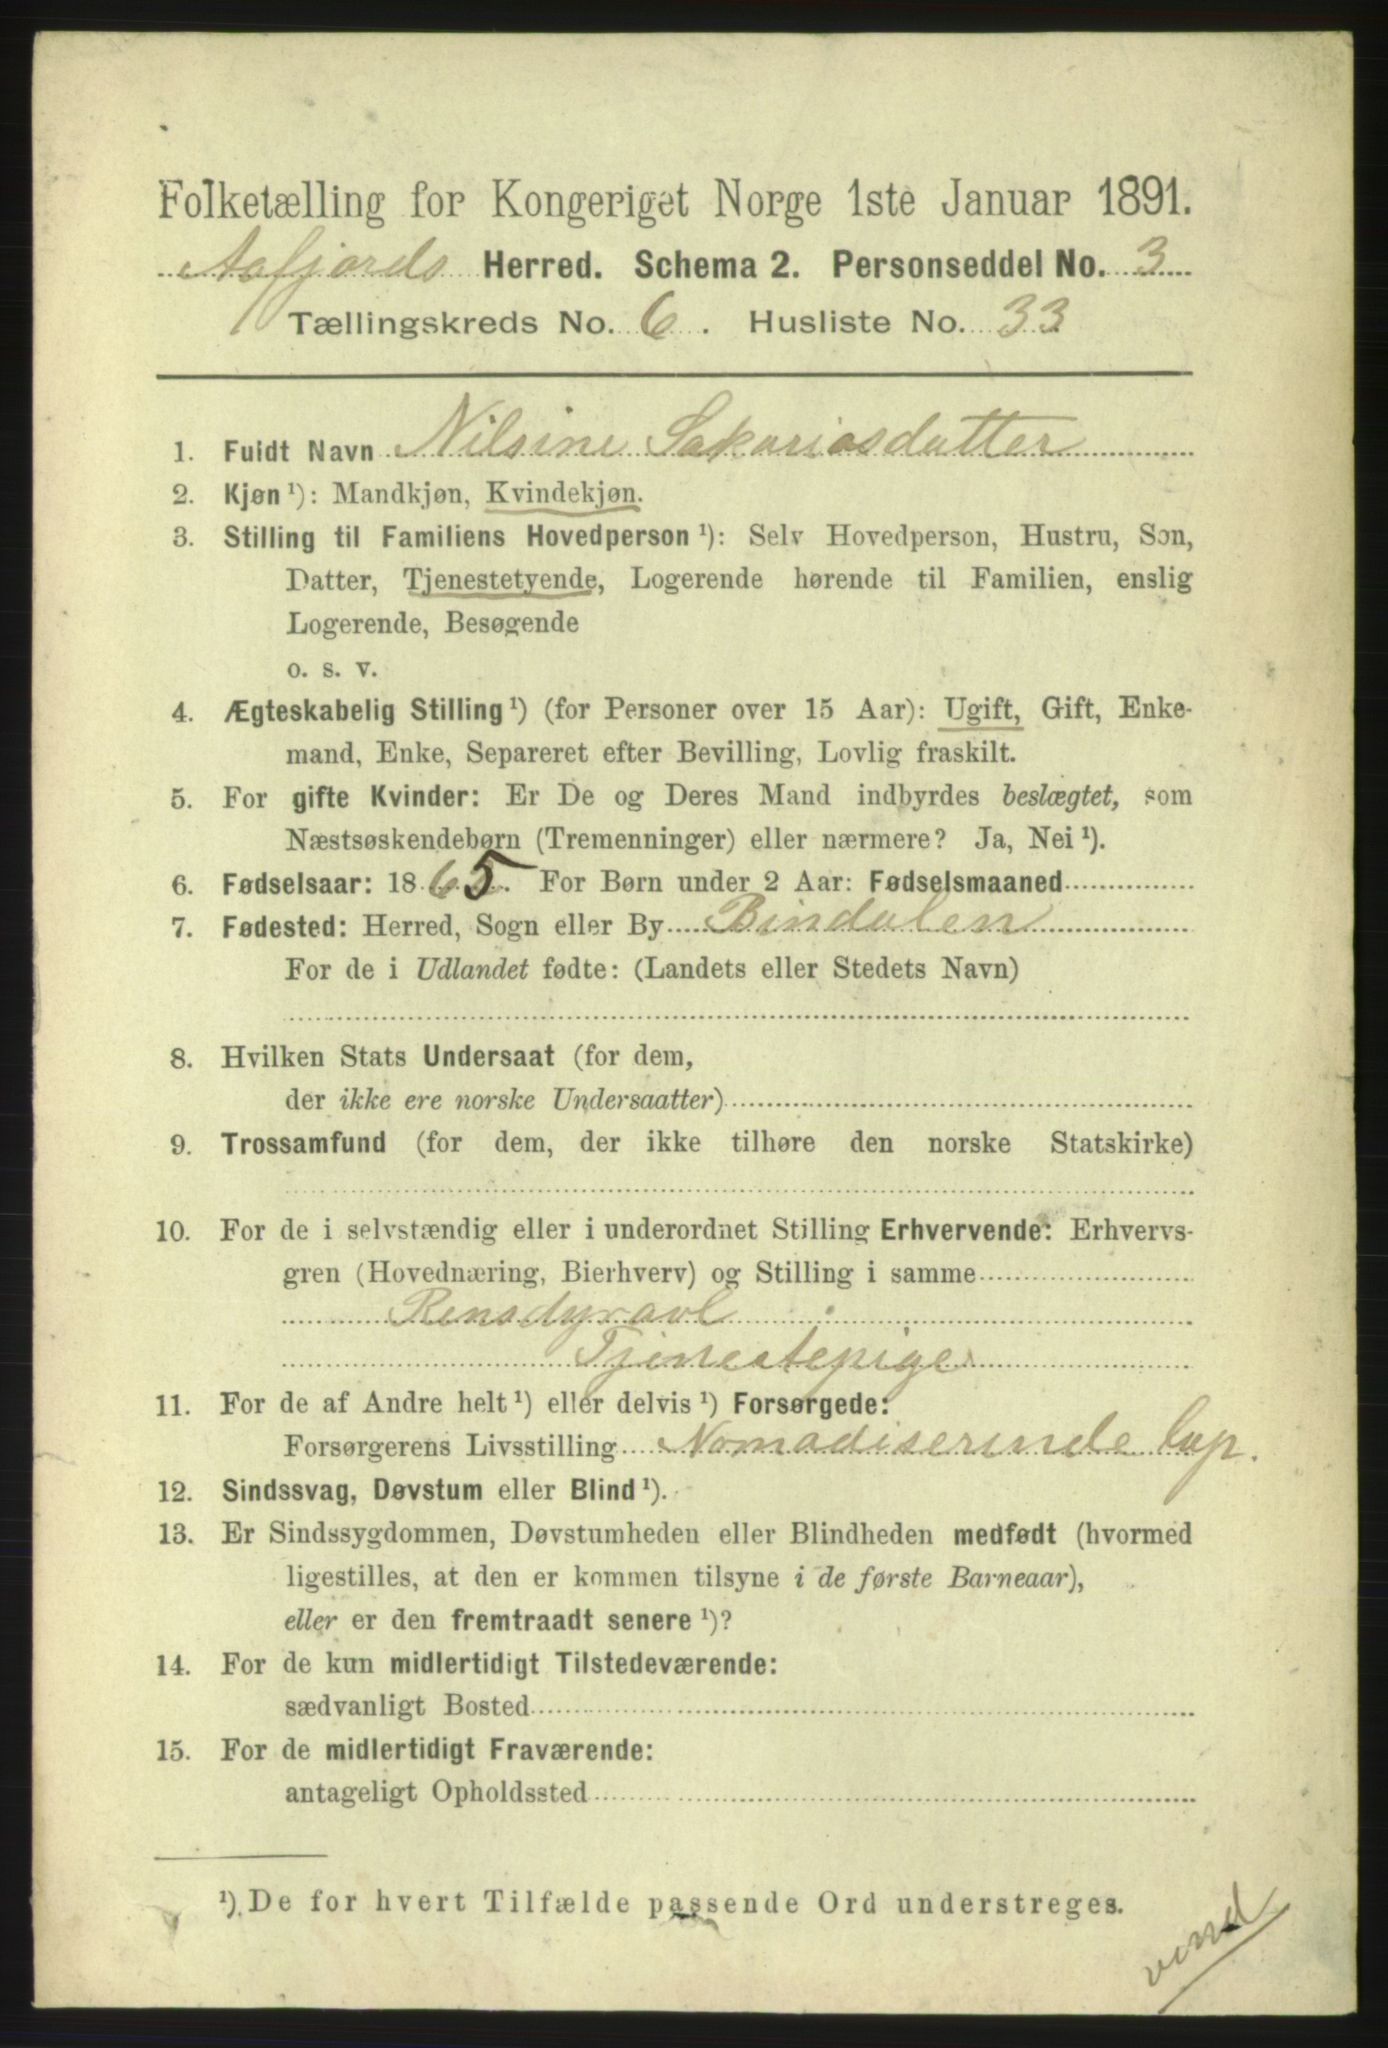 Folketælling for Kongeriget Norge 1ste Januar 1891.
Aafjords Herred. Schema 2. Personseddel No. 3
Tællingskreds No. 6. Husliste No. 33
1. Fuldt Navn Nilsine Sakariasdatter
2. Kjøn ¹): Mandkjøn, Kvindekjøn.
3. Stilling til Familiens Hovedperson ¹): Selv Hovedperson, Hustru, Søn,
Datter, Tjenestetyende, Logerende hørende til Familien, enslig
Logerende, Besøgende
o. s. v.
4. Ægteskabelig Stilling ¹) (for Personer over 15 Aar): Ugift, Gift, Enke-
mand, Enke, Separeret efter Bevilling, Lovlig fraskilt.
5. For gifte Kvinder: Er De og Deres Mand indbyrdes beslægtet, som
Næstsøskendebørn (Tremenninger) eller nærmere? Ja, Nei ¹).
6. Fødselsaar: 1865. For Børn under 2 Aar: Fødselsmaaned
7. Fødested: Herred, Sogn eller By Bindalen
For de i Udlandet fødte: (Landets eller Stedets Navn)
8. Hvilken Stats Undersaat (for dem,
der ikke ere norske Undersaatter)
9. Trossamfund (for dem, der ikke tilhøre den norske Statskirke)
10. For de i selvstændig eller i underordnet Stilling Erhvervende: Erhvervs-
gren (Hovednæring, Bierhverv) og Stilling i samme
Rensdyravl
Tjenestepige
11. For de af Andre helt ¹) eller delvis ¹) Forsørgede:
Forsørgerens Livsstilling Nomadiserende Lap.
12. Sindssvag, Døvstum eller Blind ¹).
13. Er Sindssygdommen, Døvstumheden eller Blindheden medfødt (hvormed
ligestilles, at den er kommen tilsyne i de første Barneaar),
eller er den fremtraadt senere ¹)?
14. For de kun midlertidigt Tilstedeværende:
sædvanligt Bosted
15. For de midlertidigt Fraværende:
antageligt Opholdssted
¹) De for hvert Tilfælde passende Ord understreges.
vend